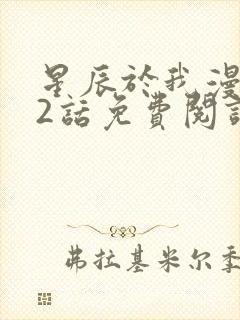 星辰於我漫
2話免費閱讀
弗拉基米尔季